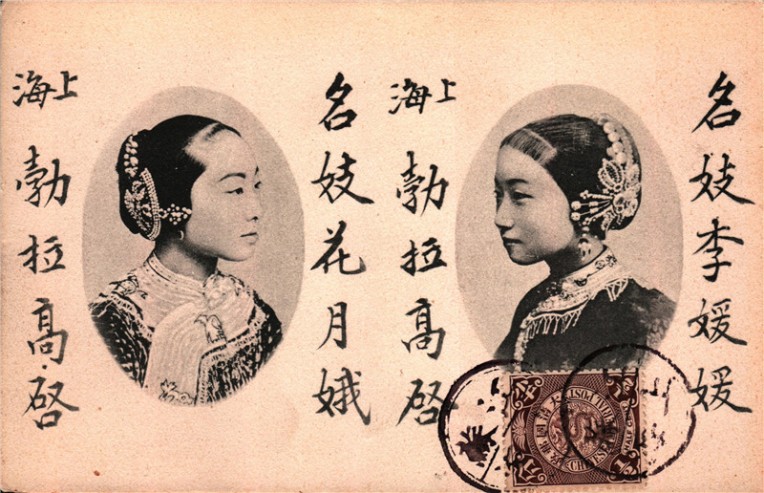 名妓李媛媛
上海
勃拉高啓
名妓花月娥
上海
勃拉高啓